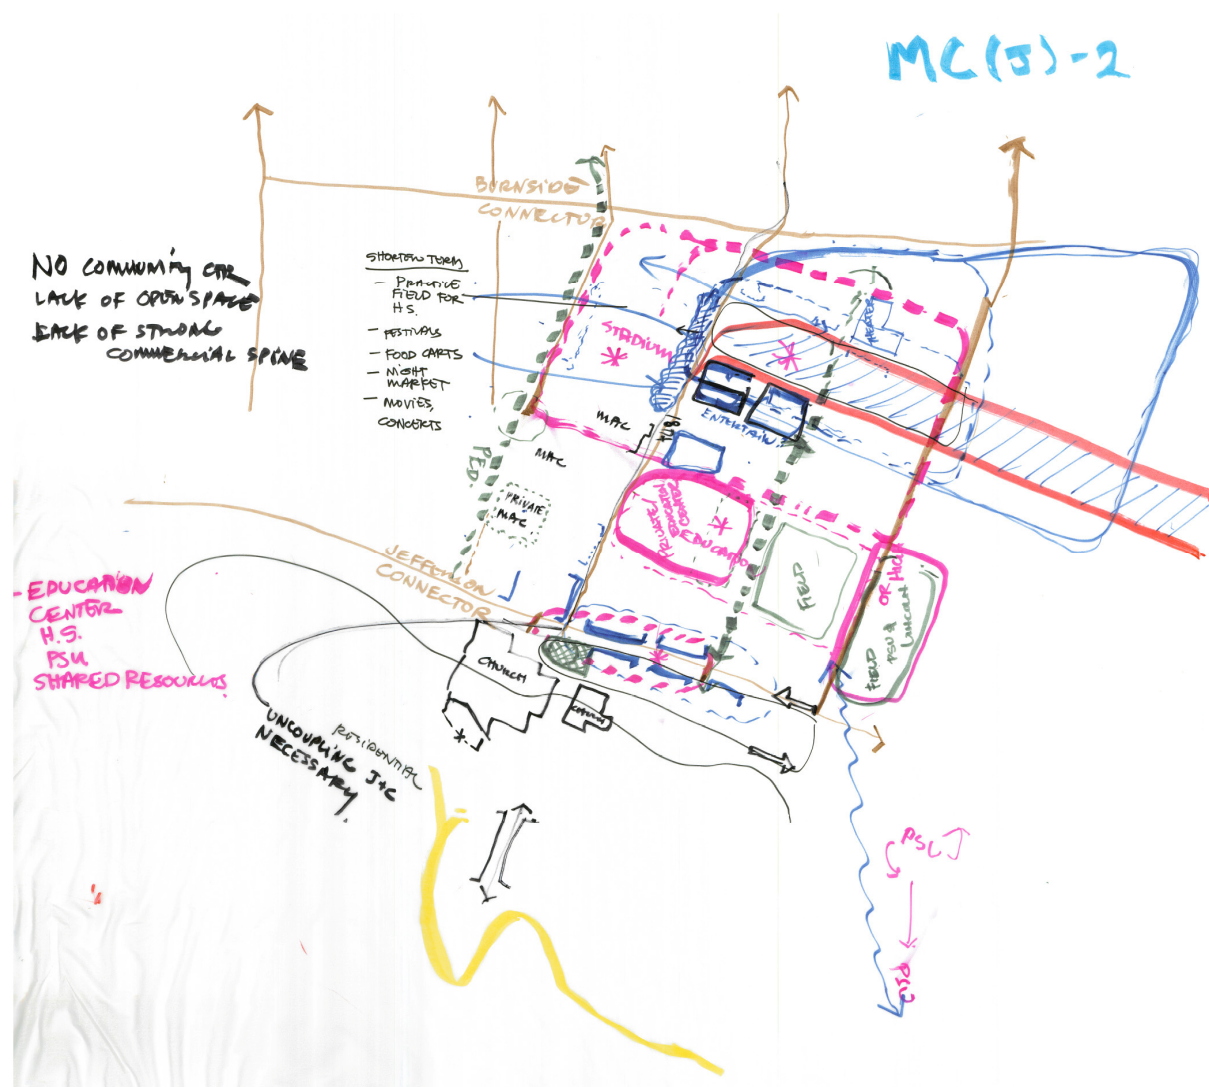 MC(J)-2
BURNSIDE
CONNECTOR
NO COMMUNITY CTR
LACK OF OPEN SPACE
LACK OF STRONG
COMMERCIAL SPINE
SHORTER TERM
- PRACTICE
FIELD FOR
H.S.
- FESTIVALS
- FOOD CARTS
- NIGHT
MARKET
- MOVIES,
CONCERTS
STADIUM
THEATER
ENTERTAIN.
MAC
18TH
MAC
PED
PRIVATE
MAC
PRIVATE/
EDUCATION
CENTER
EDUCATION
FIELD
JEFFERSON
CONNECTOR
FIELD OR
PSU &
LINCOLN HIGH
- EDUCATION
CENTER
H.S.
PSU
SHARED RESOURCES
CHURCH
RESIDENTIAL
UNCOUPLING J+C
NECESSARY.
PSU
PSU